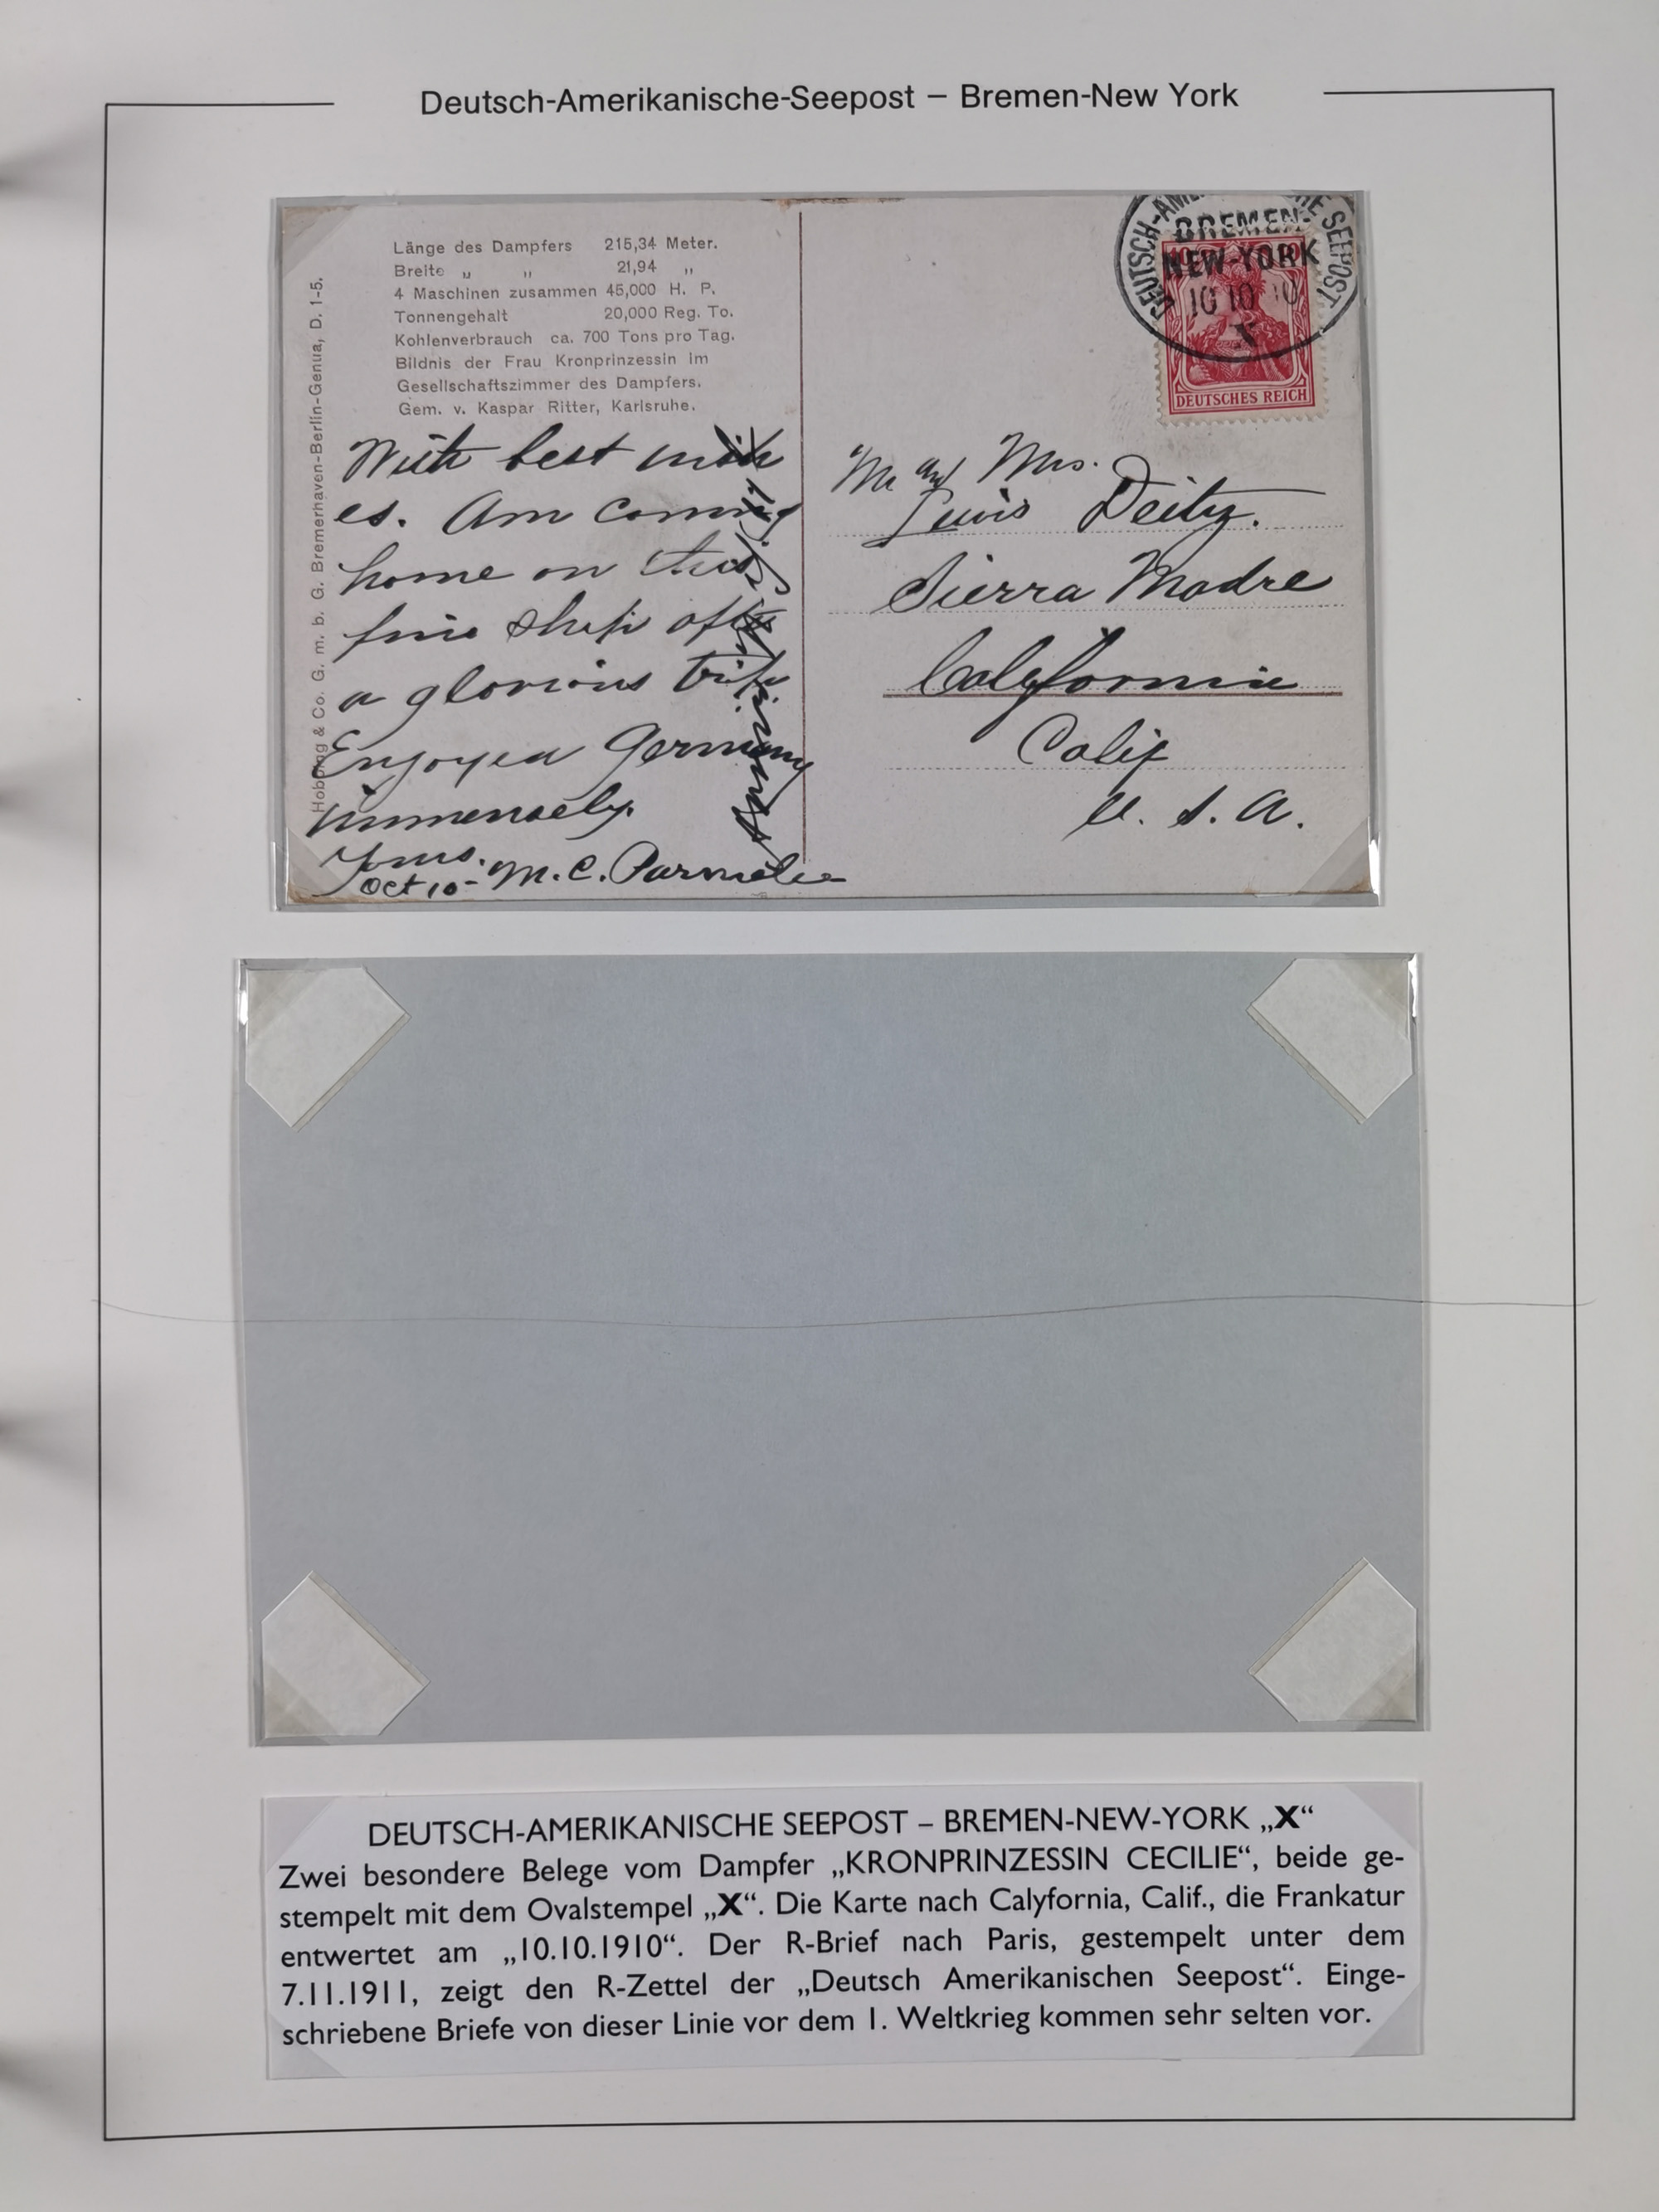 Deutsch-Amerikanische-Seepost – Bremen-New York
Länge des Dampfers 215,34 Meter.
Breite „ „ 21,94 „
4 Maschinen zusammen 45,000 H. P.
Tonnengehalt 20,000 Reg. To.
Kohlenverbrauch ca. 700 Tons pro Tag.
Bildnis der Frau Kronprinzessin im
Gesellschaftszimmer des Dampfers.
Gem. v. Kaspar Ritter, Karlsruhe.
Hobbing & Co. G. m. b. G. Bremerhaven-Berlin-Genua, D. 1-5.
With best wish
es. Am coming
home on this
fine ship after
a glorious trip
Enjoyed Germany
immensely.
Yours.
Oct 10- M. C. Parmelee
DEUTSCH-AMERIKANISCHE-SEEPOST
BREMEN-
NEW-YORK
10 10 10
X
DEUTSCHES REICH
Mr and Mrs.
Lewis Deitz.
Sierra Madre
Calyfornia
Calif
U. S. A.
DEUTSCH-AMERIKANISCHE SEEPOST – BREMEN-NEW-YORK „X“
Zwei besondere Belege vom Dampfer „KRONPRINZESSIN CECILIE“, beide ge-
stempelt mit dem Ovalstempel „X“. Die Karte nach Calyfornia, Calif., die Frankatur
entwertet am „10.10.1910“. Der R-Brief nach Paris, gestempelt unter dem
7.11.1911, zeigt den R-Zettel der „Deutsch Amerikanischen Seepost“. Einge-
schriebene Briefe von dieser Linie vor dem 1. Weltkrieg kommen sehr selten vor.